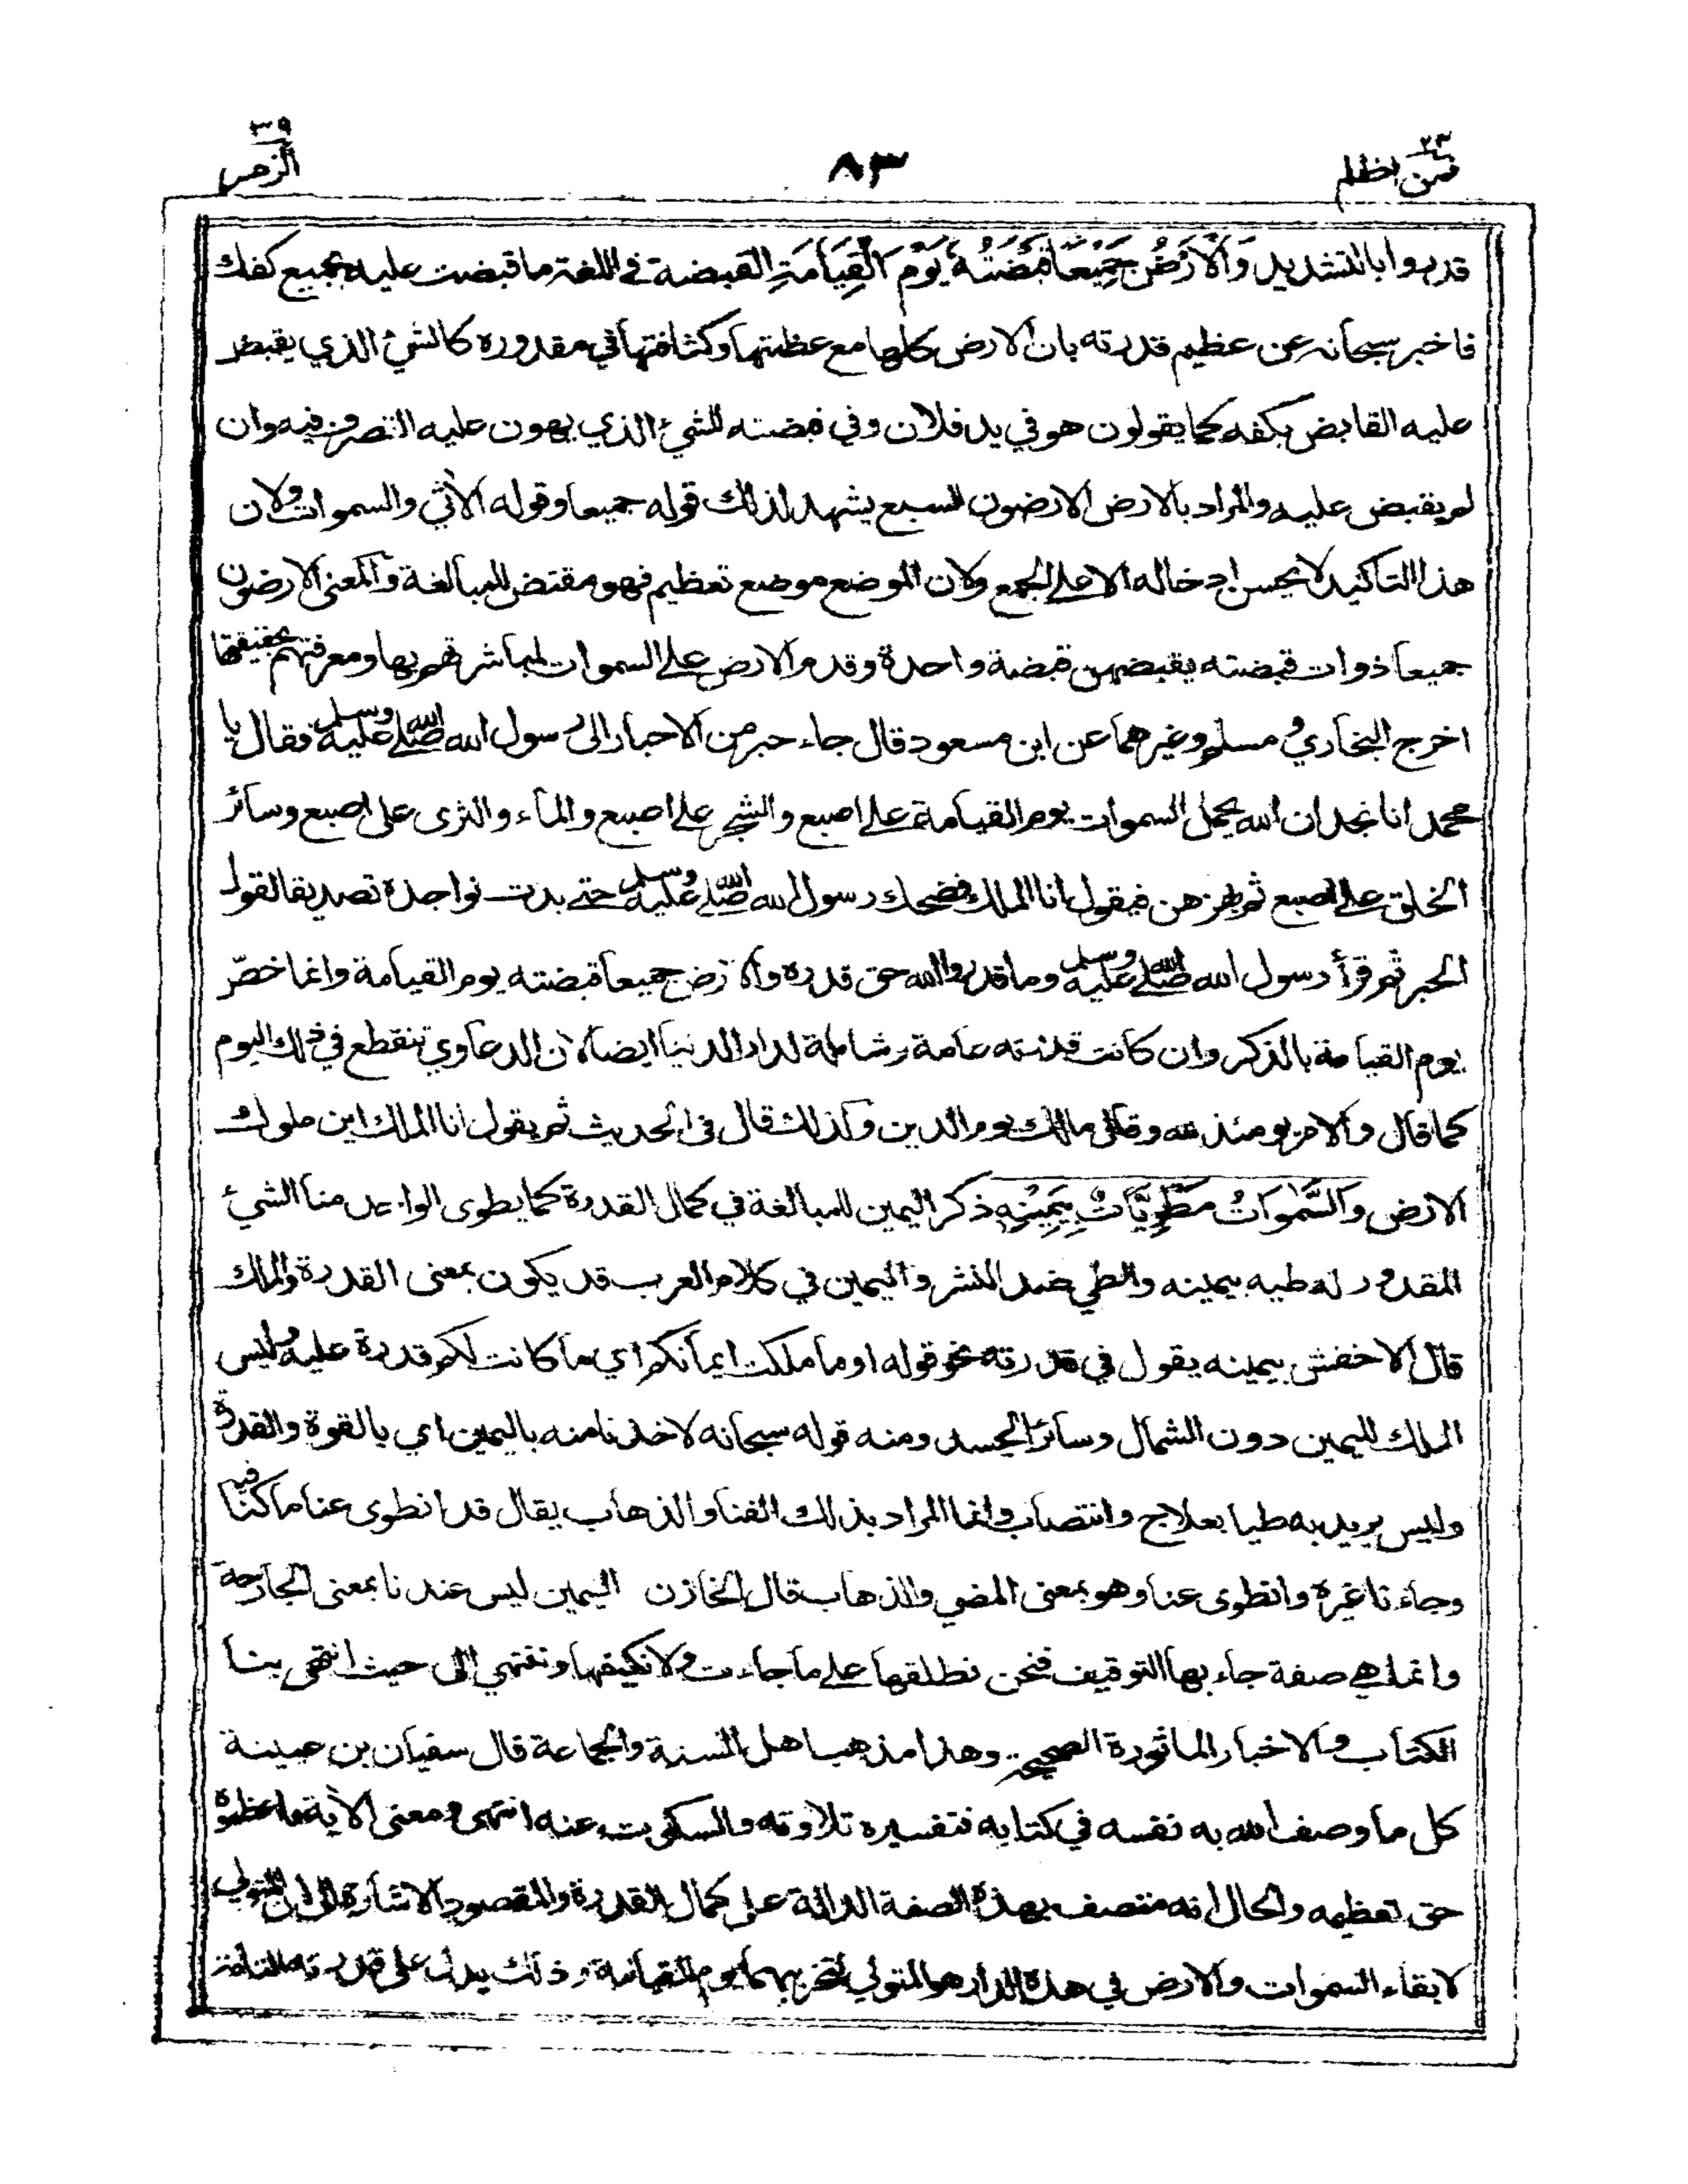 فمن اظلم ٢٣
٨٣
الزمر ٣٩
قدروا بالتشديد وَالْاَرْضُ جَمِيْعًا قَبْضَتُهٗ يَوْمَ الْقِيَامَةِ القبضة في اللغة ما قبضت عليه بجميع كفك
فاخبر سبحانه عن عظيم قدرته بان الارض كلها مع عظمتها وكثافتها في مقدوره كالشئ الذي يقبض
عليه القابض بكفه كما يقولون هو في يد فلان وفي قبضته للشئ الذي يهون عليه التصرف فيه وان
لم يقبض عليه والمراد بالارض الارضون السبع يشهد لذلك قوله جميعا وقوله الأتي والسموات ولان
هذا التاكيد لا يحسن ادخاله الا على الجمع ولان الموضع موضع تعظيم فهو مقتض للمبالغة والمعنى الارضون
جميعا ذوات قبضته يقبضهن قبضة واحدة وقدم الارض على السموات لمباشرتهم بها ومعرفتهم بحقيقتها
اخرج البخاري ومسلم وغيرهما عن ابن مسعود قال جاء حبر من الاحبار الى رسول الله صلى الله عليه وسلم فقال يا
محمد انا نجد ان الله يجمل السموات يوم القيامة على اصبع والشجر على اصبع والماء والثرى على اصبع وسائر
الخلق على اصبع ثم يهزهن فيقول انا الملك فضحك رسول الله صلى الله عليه وسلم حتى بدت نواجذه تصديقا لقول
الحبر ثم قرأ رسول الله صلى الله عليه وسلم وما قدروا الله حق قدره والارض جميعا قبضته يوم القيامة وانما خصّ
يوم القيامة بالذكر وان كانت قدرته عامة وشاملة لدار الدنيا ايضا لان الدعاوي تنقطع في ذلك اليوم
كما قال والامر يومئذ لله وقال مالك يوم الدين وكذلك قال في الحديث ثم يقول انا الملك اين ملوك
الارض وَالسَّمٰوَاتُ مَطْوِيَّاتٌ بِيَمِيْنِهٖ ذكر اليمين للمبالغة في كمال القدرة كما يطوى الواحد منا الشيئ
المقدور له طيه بيمينه والطي ضد النشر واليمين في كلام العرب قد يكون بمعنى القدرة والملك
قال الاخفش بيمينه يقول في قدرته نحو قوله او ما ملكت ايمانكم اي ما كانت لكم قدرة عليه وليس
الملك لليمين دون الشمال وسائر الجسد ومنه قوله سبحانه لاخذنا منه باليمين اي بالقوة والقدرة
وليس يريد به طيا بعلاج وانتصاب وانما المراد بذلك الفنا والذهاب يقال قد انطوى عنا ما كنا فيه
وجاءنا غيره وانطوى عنا وهو بمعنى المضي والذهاب قال الخازن اليمين ليس عندنا بمعنى الجارحة
وانما هي صفة جاء بها التوقيف فنحن نطلقها على ما جاءت ولا نكيفها وننتهي الى حيث انتهى بنا
الكتاب والاخبار الماثورة الصحيحة وهذا مذهب اهل السنة والجماعة قال سفيان بن عيينة
كل ما وصف الله به نفسه في كتابه فتفسيره تلاوته والسكوت عنه انتهى ومعنى الآية ما عظموه
حق تعظيمه والحال انه متصف بهذه الصفة الدالة على كمال القدرة والمقصود الاشارة الى ان المتولي
لابقاء السموات والارض في هذه الدار هو المتولي لتخريبهما يوم القيامة وذلك يدل على قدرته التامة